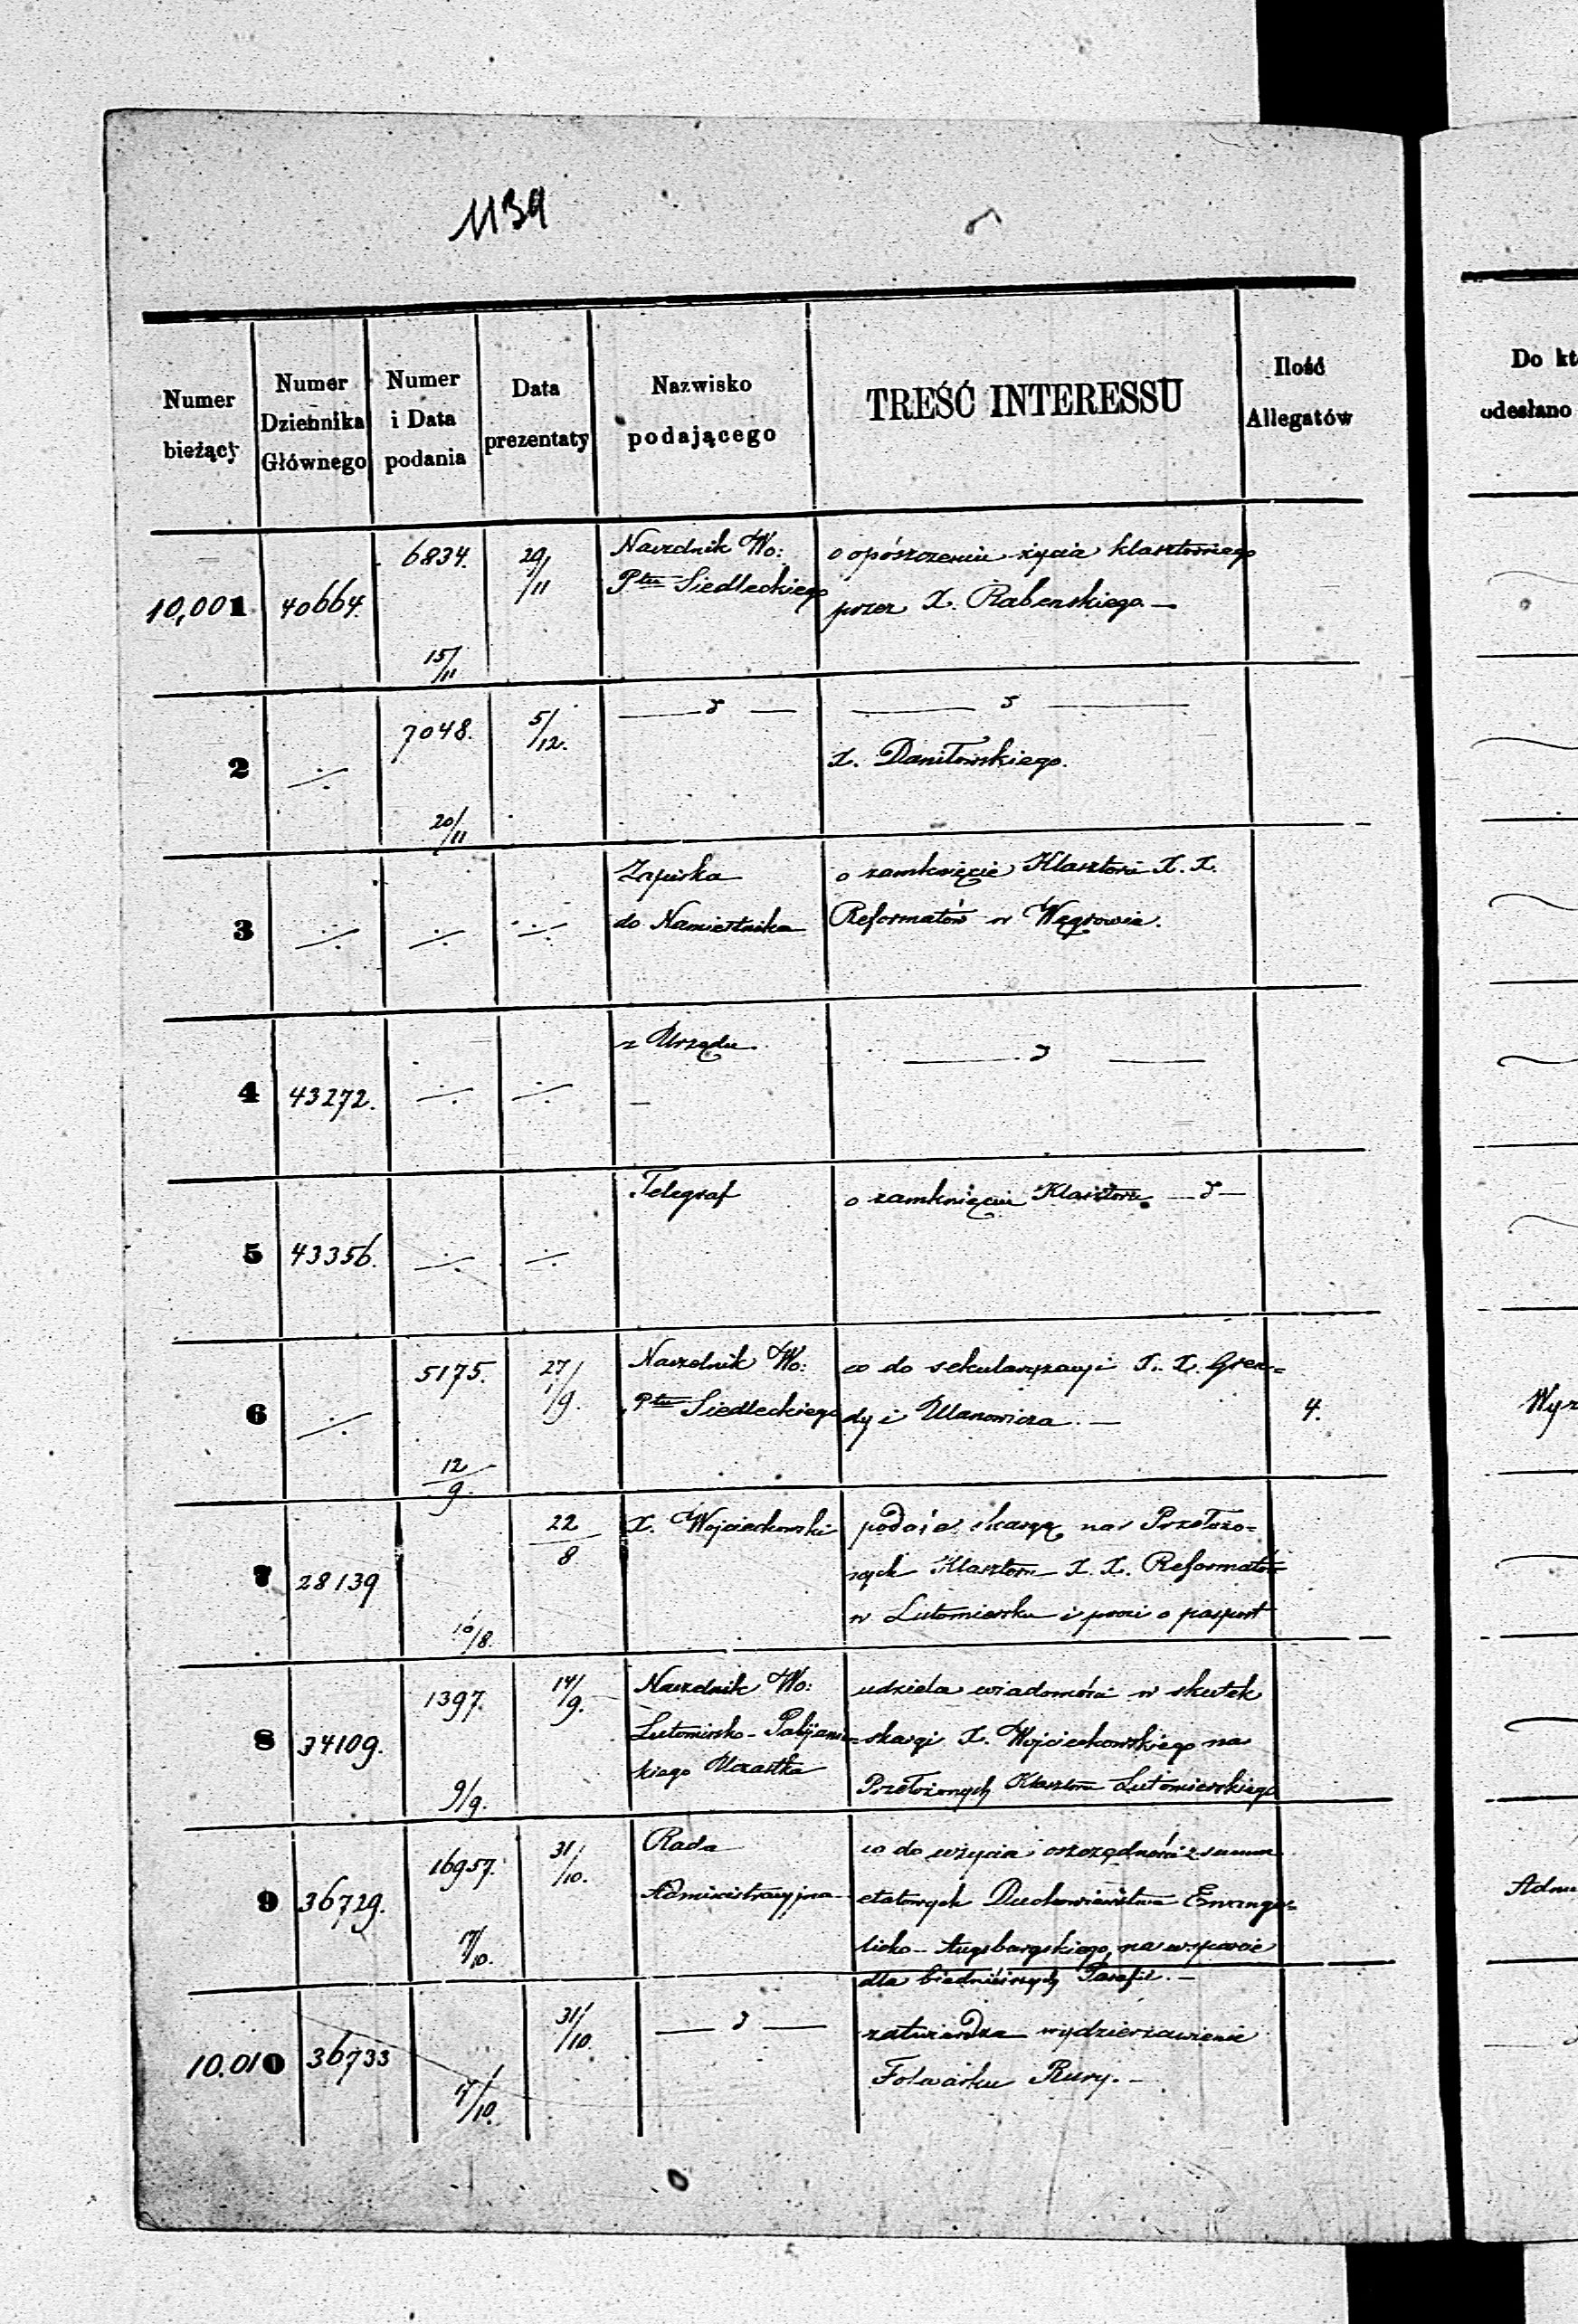 1139
Numer bieżący
Numer Dziennika Głównego
Numer i Data podania
Data prezentaty
Nazwisko podającego
TREŚĆ INTERESSU
Ilość Allegatów
Do kt
odesłano
10,001 40664. 6834. 15/11 29/11
Naczelnik Wo:
Ptu Siedleckiego
o opószczeniu życia klasztornego
przez X. Rabenskiego. —
2 ÷ 7048. 20/11 5/12.
— d —
— d —
X. Daniłowskiego.
3 ÷ ÷ ÷
Zapiska
do Namiestnika
o zamknięcie Klasztoru X. X.
Reformatów w Węgrowie.
4 43272. ÷ ÷
z Urzędu
— d —
5 43356. ÷ ÷
Telegraf
o zamknięciu Klasztoru — d —
6 ÷ 5175. 12/9. 27/9.
Naczelnik Wo:
Ptu Siedleckiego
co do sekularyzacyi X. X. Gren=
dy i Ulanowicza. —
4.
Wyz
7 28139 10/8. 22/8
X. Wojciechowski
podaje skargę na Przełożo=
nych Klasztoru X. X. Reformatów
w Lutomiersku i prosi o pasport
8 34109. 1397. 9/9. 14/9.
Naczelnik Wo:
Lutomirsko-Pabijanic=
kiego Ucząstka
udziela wiadomości w skutek
skargi X. Wojciechowskiego na
Przełożonych Klasztoru Lutomierskiego
9 36729. 16957. 17/10. 31/10.
Rada
Administracyjna
co do użycia oszczędności z summ
etatowych Duchowieństwa Ewangie=
licko-Augsburgskiego, na wsparcie
dla biedniejszych Parafii. —
Admi
10.010 36733 17/10. 31/10.
— d —
zatwierdza wydzierzawienie
Folwarku Rury. —